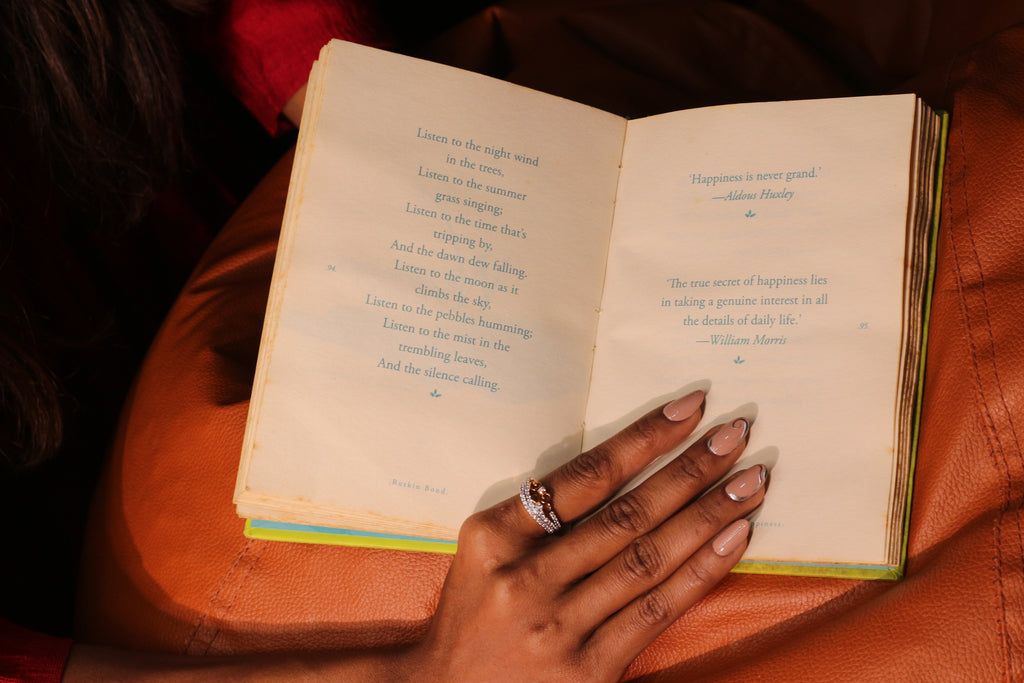 Listen to the night wind
in the trees,
Listen to the summer
grass singing;
Listen to the time that's
tripping by,
And the dawn dew falling.
Listen to the moon as it
climbs the sky,
Listen to the pebbles humming;
Listen to the mist in the
trembling leaves,
And the silence calling.
94
Ruskin Bond
'Happiness is never grand.'
—Aldous Huxley
'The true secret of happiness lies
in taking a genuine interest in all
the details of daily life.'
—William Morris
95